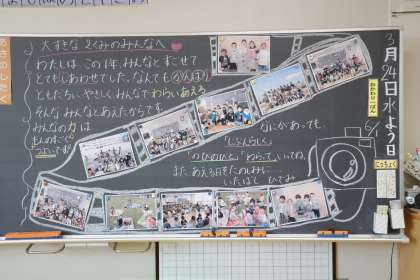 大すきな 2くみのみんなへ
わたしは、この1年、みんなと すごせて
とてもしあわせでした。なんでも がんばり
ともだちに やさしく みんなで わらいあえる
そんな みんなと あえたからです。
みんなの力は
ものすごく
つよいです!
なにがあっても、
「じぶんらしく」
「のびのびと」「わらって」いってね。
また、あえる日をたのしみに
3月24日水よう日